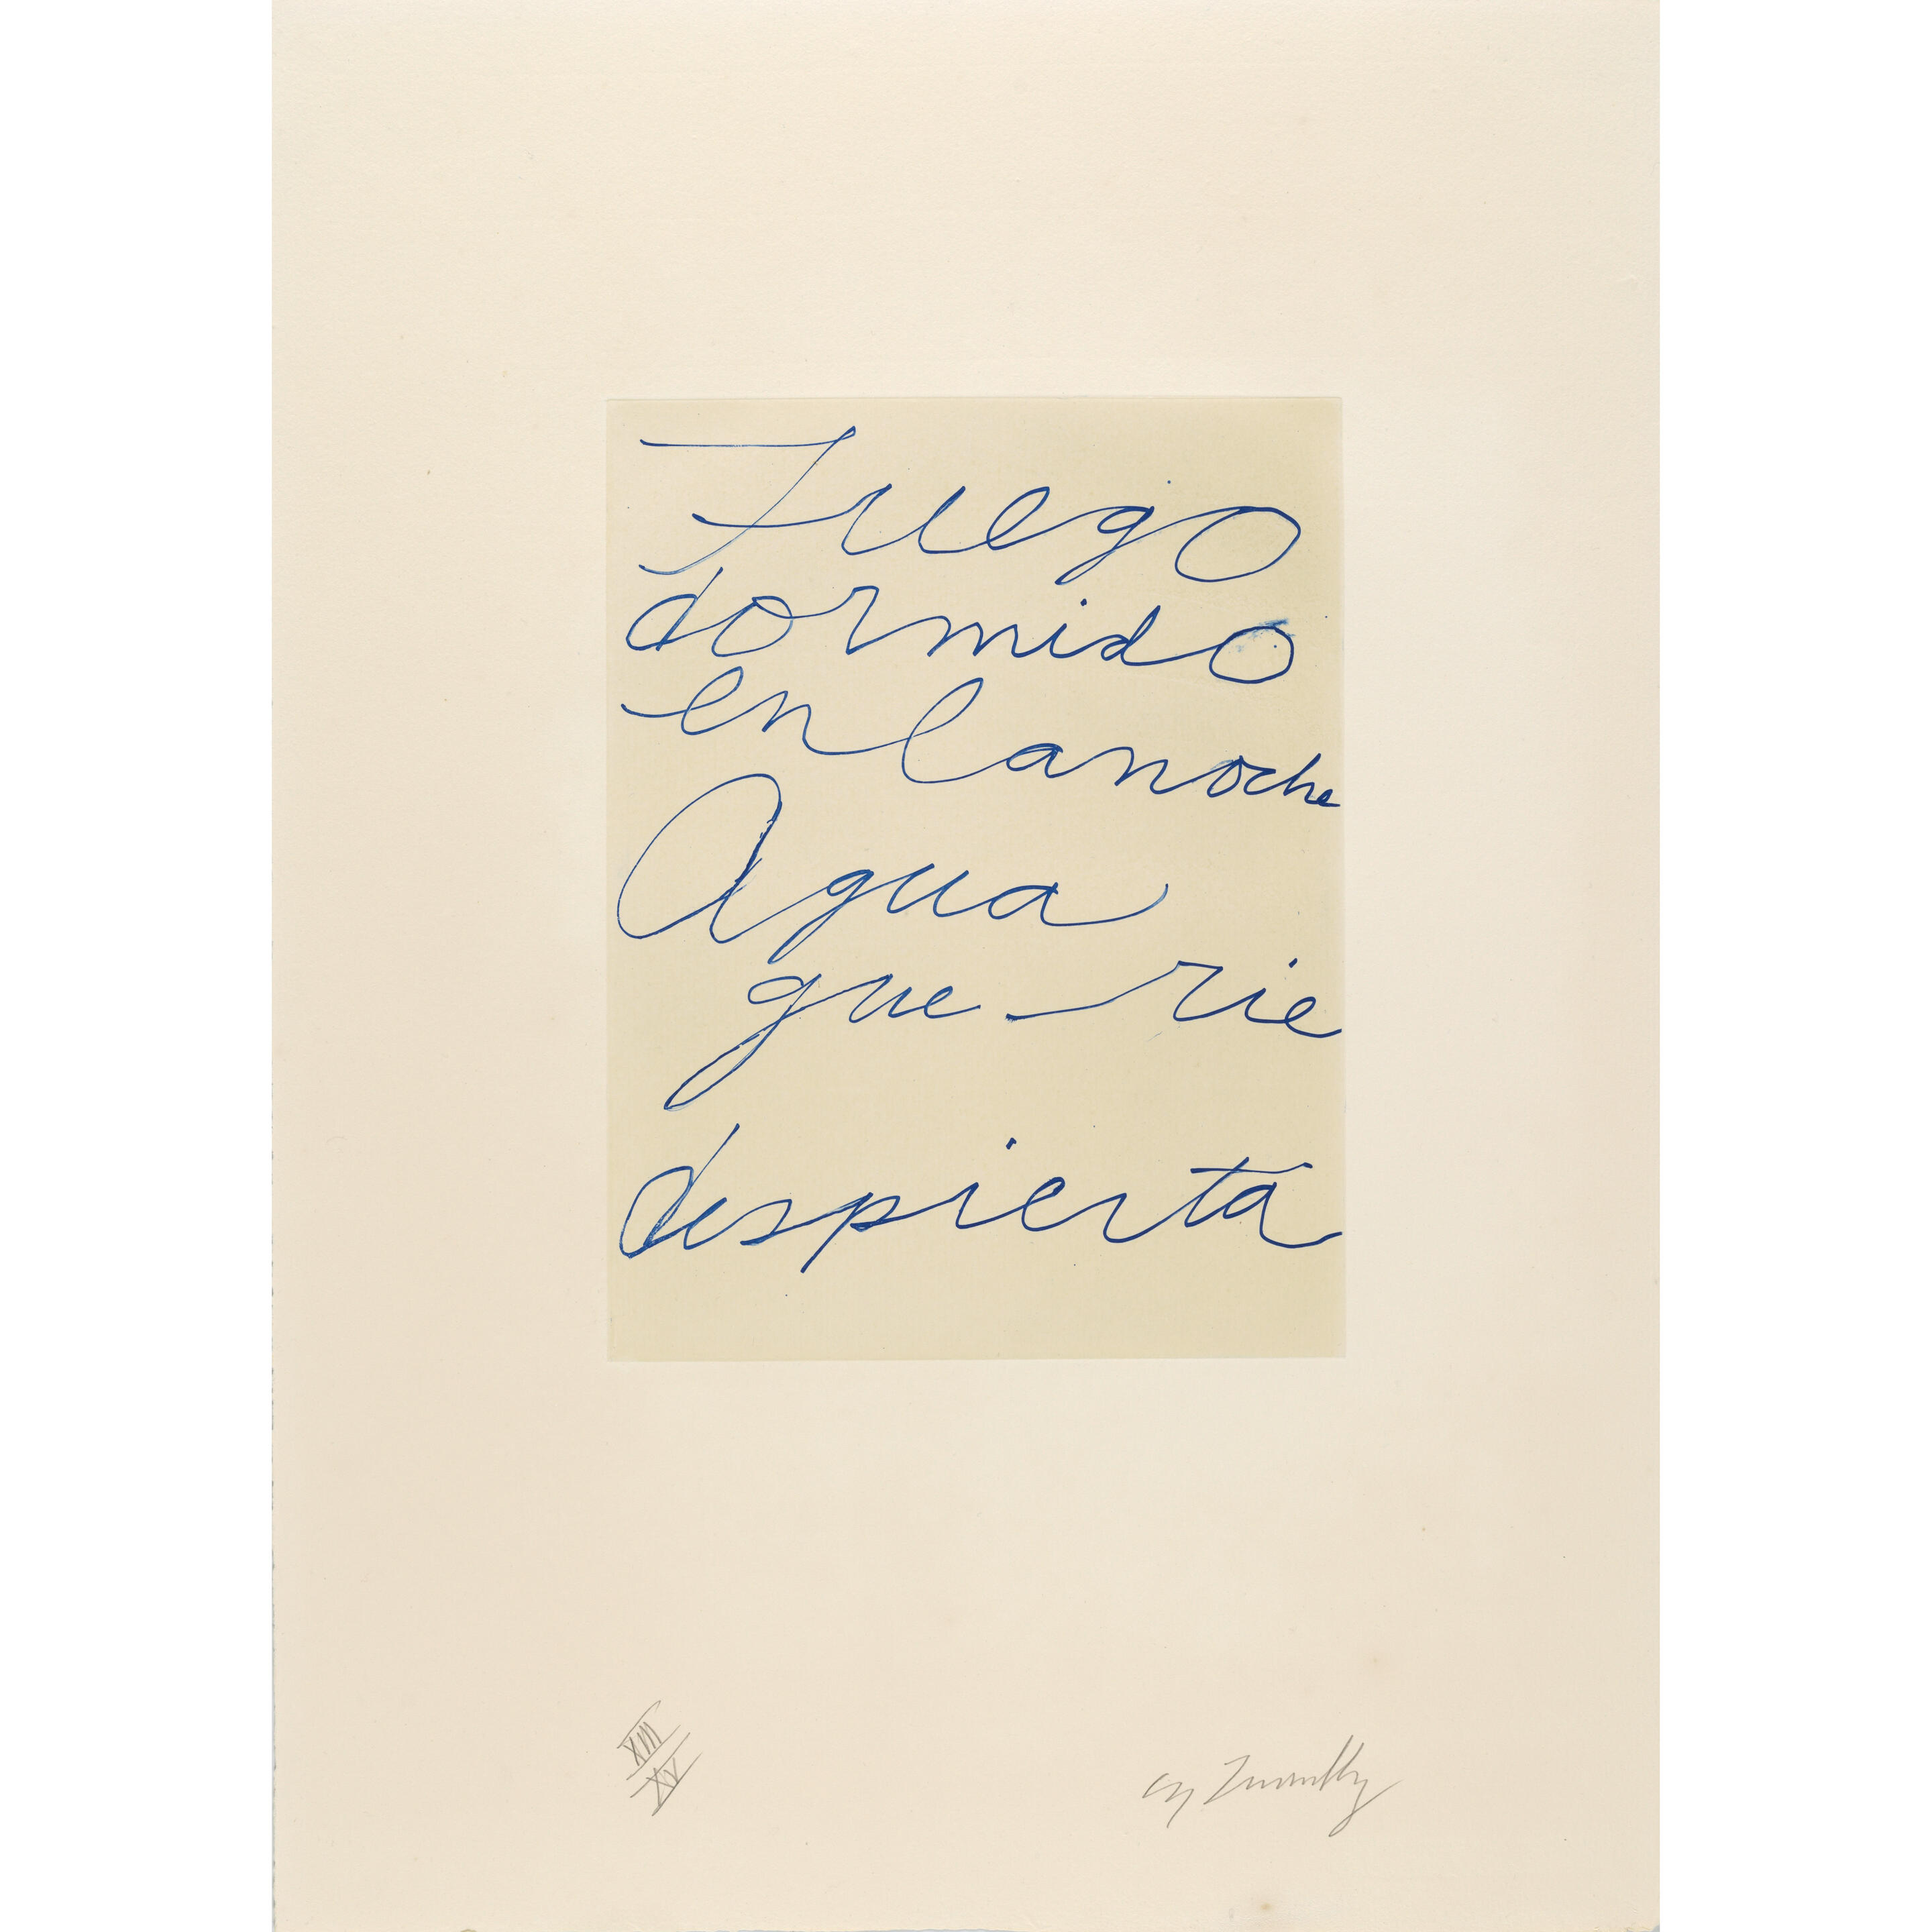 Fuego
dormido
en la noche
Agua
que rie
despierta
XIII
XV
Cy Twombly